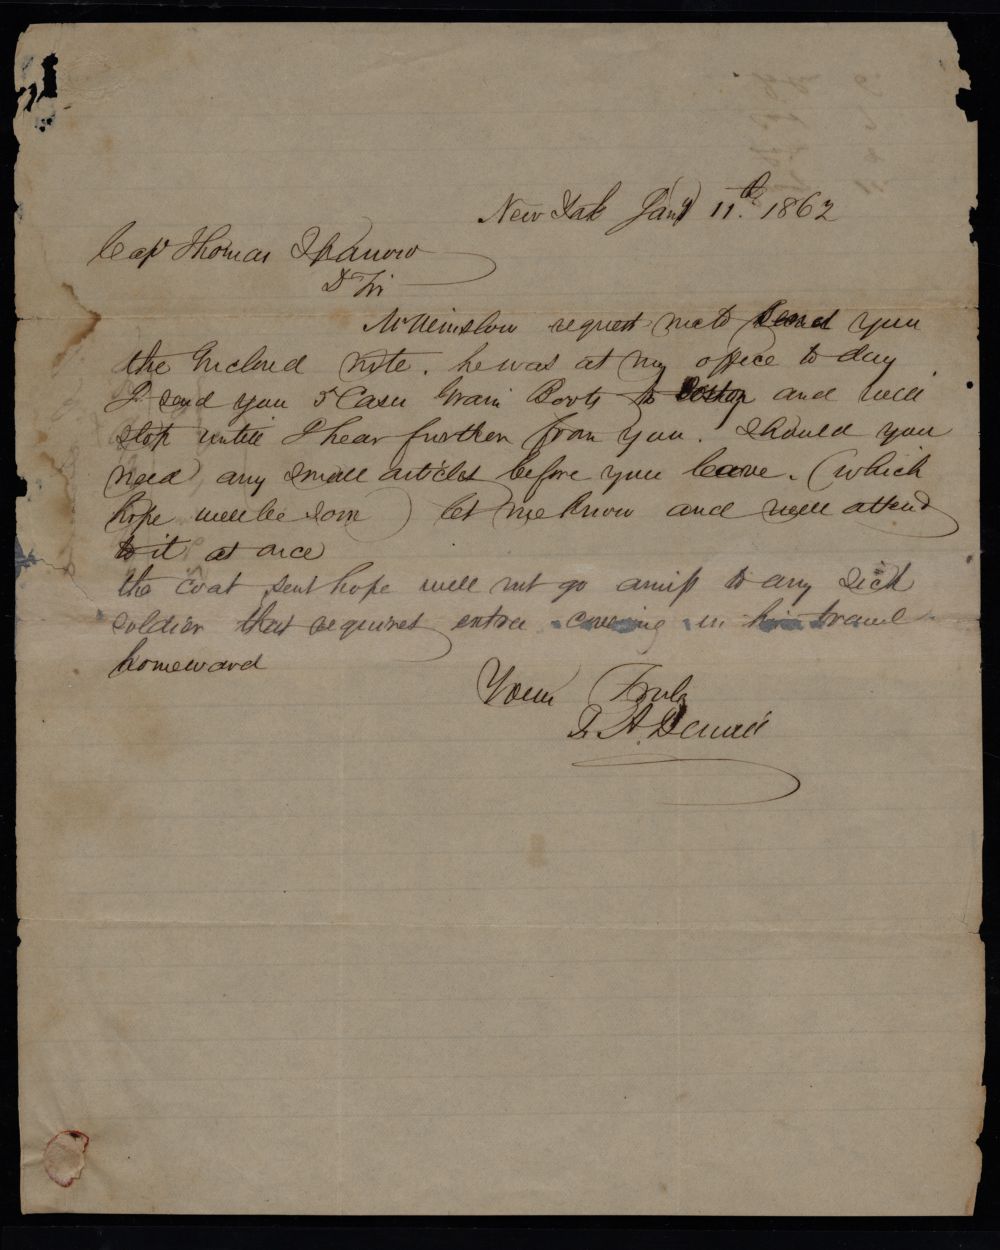 New York Jany 11th 1862
Capt Thomas Sparrow
D Sir
Mr Winslow request me to send you
the Inclosed note. he was at my office to day
I send you 5 Cases Grain Boots to Boston and will
stop untill I hear further from you. Should you
need any small articles before you leave. (which
hope will be soon) let me know and will attend
to it at once
the coat sent hope will not go amiss to any sick
soldier that requires extra covering in his travel
homeward
Yours Truly
A.